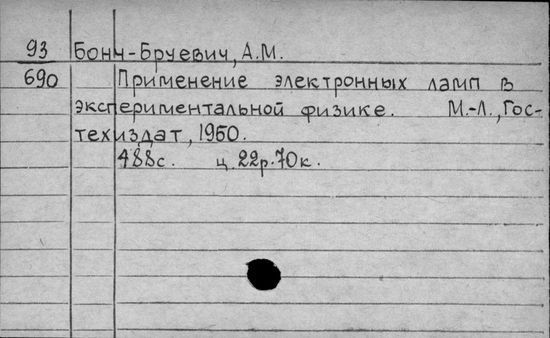 93 Бонч-Бруевич, А.М.
690 Применение электронных ламп в
экспериментальной физике. М.-Л., Гос-
техиздат, 1950.
488с. ц. 22р.70к.